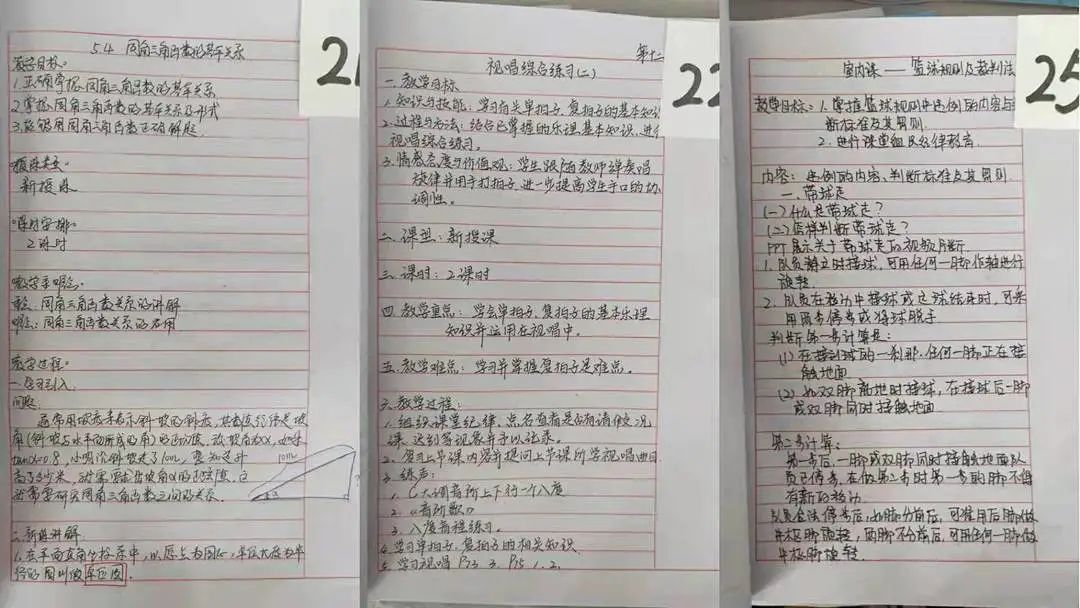 21
5.4 同角三角函数的基本关系
教学目标:
1.正确掌握同角三角函数的基本关系
2.掌握同角三角函数的基本关系及形式
3.能够用同角三角函数正确解题
授课类型:
新授课
课时安排:
2课时
教学重难点:
重点:同角三角函数关系的讲解
难点:同角三角函数关系的应用
教学过程:
一.复习引入
问题:
通常用坡度来表示斜坡的斜度,其数值往往是坡
角(斜坡与水平面所成的角)的正切值,设坡角为α,
tanα=0.8,小明沿斜坡走了10m,要知道升
高了多少米,就需要求出坡角α的正弦值,这
就需要研究同角三角函数之间的关系.
10m
二.新课讲解
1.在平面直角坐标系中,以原点为圆心,单位长度为半
径的圆叫做单位圆.
22
第十二
视唱综合练习(二)
一.教学目标
1.知识与技能:学习有关单拍子、复拍子的基本知识
2.过程与方法:结合已掌握的乐理基本知识,进行
视唱综合练习。
3.情感态度与价值观:学生跟随教师弹奏唱
旋律并用手打拍子,进一步提高学生手口的协
调性。
二.课型:新授课
三.课时:2课时
四.教学重点:学会单拍子、复拍子的基本乐理
知识并运用在视唱中。
五.教学难点:学习并掌握复拍子是难点。
六.教学过程:
1.组织课堂纪律,点名查看是否有请假、旷
课、迟到等现象并予以记录。
2.复习上节课内容并提问上节课所学视唱曲目
3.练声:
1.C大调音阶上下行一个八度
2.《音阶歌》
3.八度音程练习。
4.学习单拍子、复拍子的相关知识
5.学习视唱 P73 3. P75 1. 2.
25
室内课——篮球规则及裁判法
教学目标:1.掌握篮球规则中违例的内容与
断标准及其罚则.
2.进行课堂组织纪律教育.
内容:违例的内容、判断标准及其罚则.
一.带球走
(一)什么是带球走?
(二)怎样判断带球走?
PPT展示关于带球走的视频片断.
1.队员静立时接球,可用任何一脚作轴进行
旋转.
2.队员在移动中接球或运球结束时,可采
用两步停步或将球脱手.
判断第一步计算是:
(1)在接到球的一刹那,任何一脚正在接
触地面
(2)如双脚离地时接球,在接球后一脚
或双脚同时接触地面
第二步计算:
第一步后,一脚或双脚同时接触地面队
员已停步,在做第二步时第一步的脚不得
有新的移动
队员合法停步后,如脚分前后,可使用后脚做
中枢脚旋转,两脚不分前后,可用任何一脚做
中枢脚旋转.